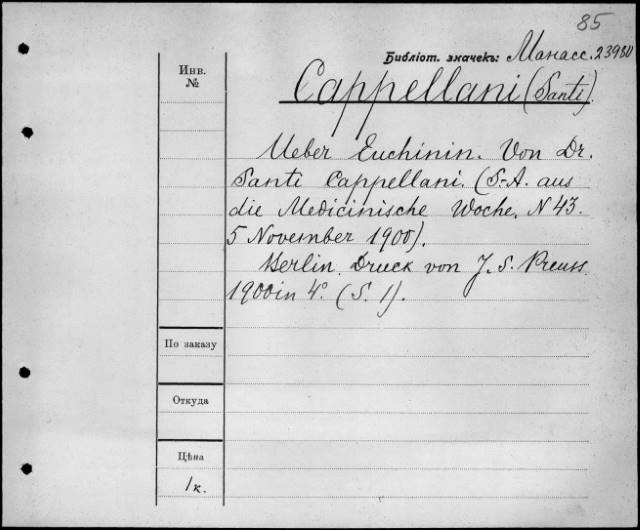 85
Библіот. значекъ: Манасс. 23980
Инв.
№
Cappellani (Santi).
Ueber Euchinin. Von Dr.
Santi Cappellani. (S.-A. aus
die Medicinische Woche. N 43.
5 November 1900).
Berlin. Druck von J. S. Preuss
1900 in 4°. (S. 1).
По заказу
Откуда
Цѣна
1 к.